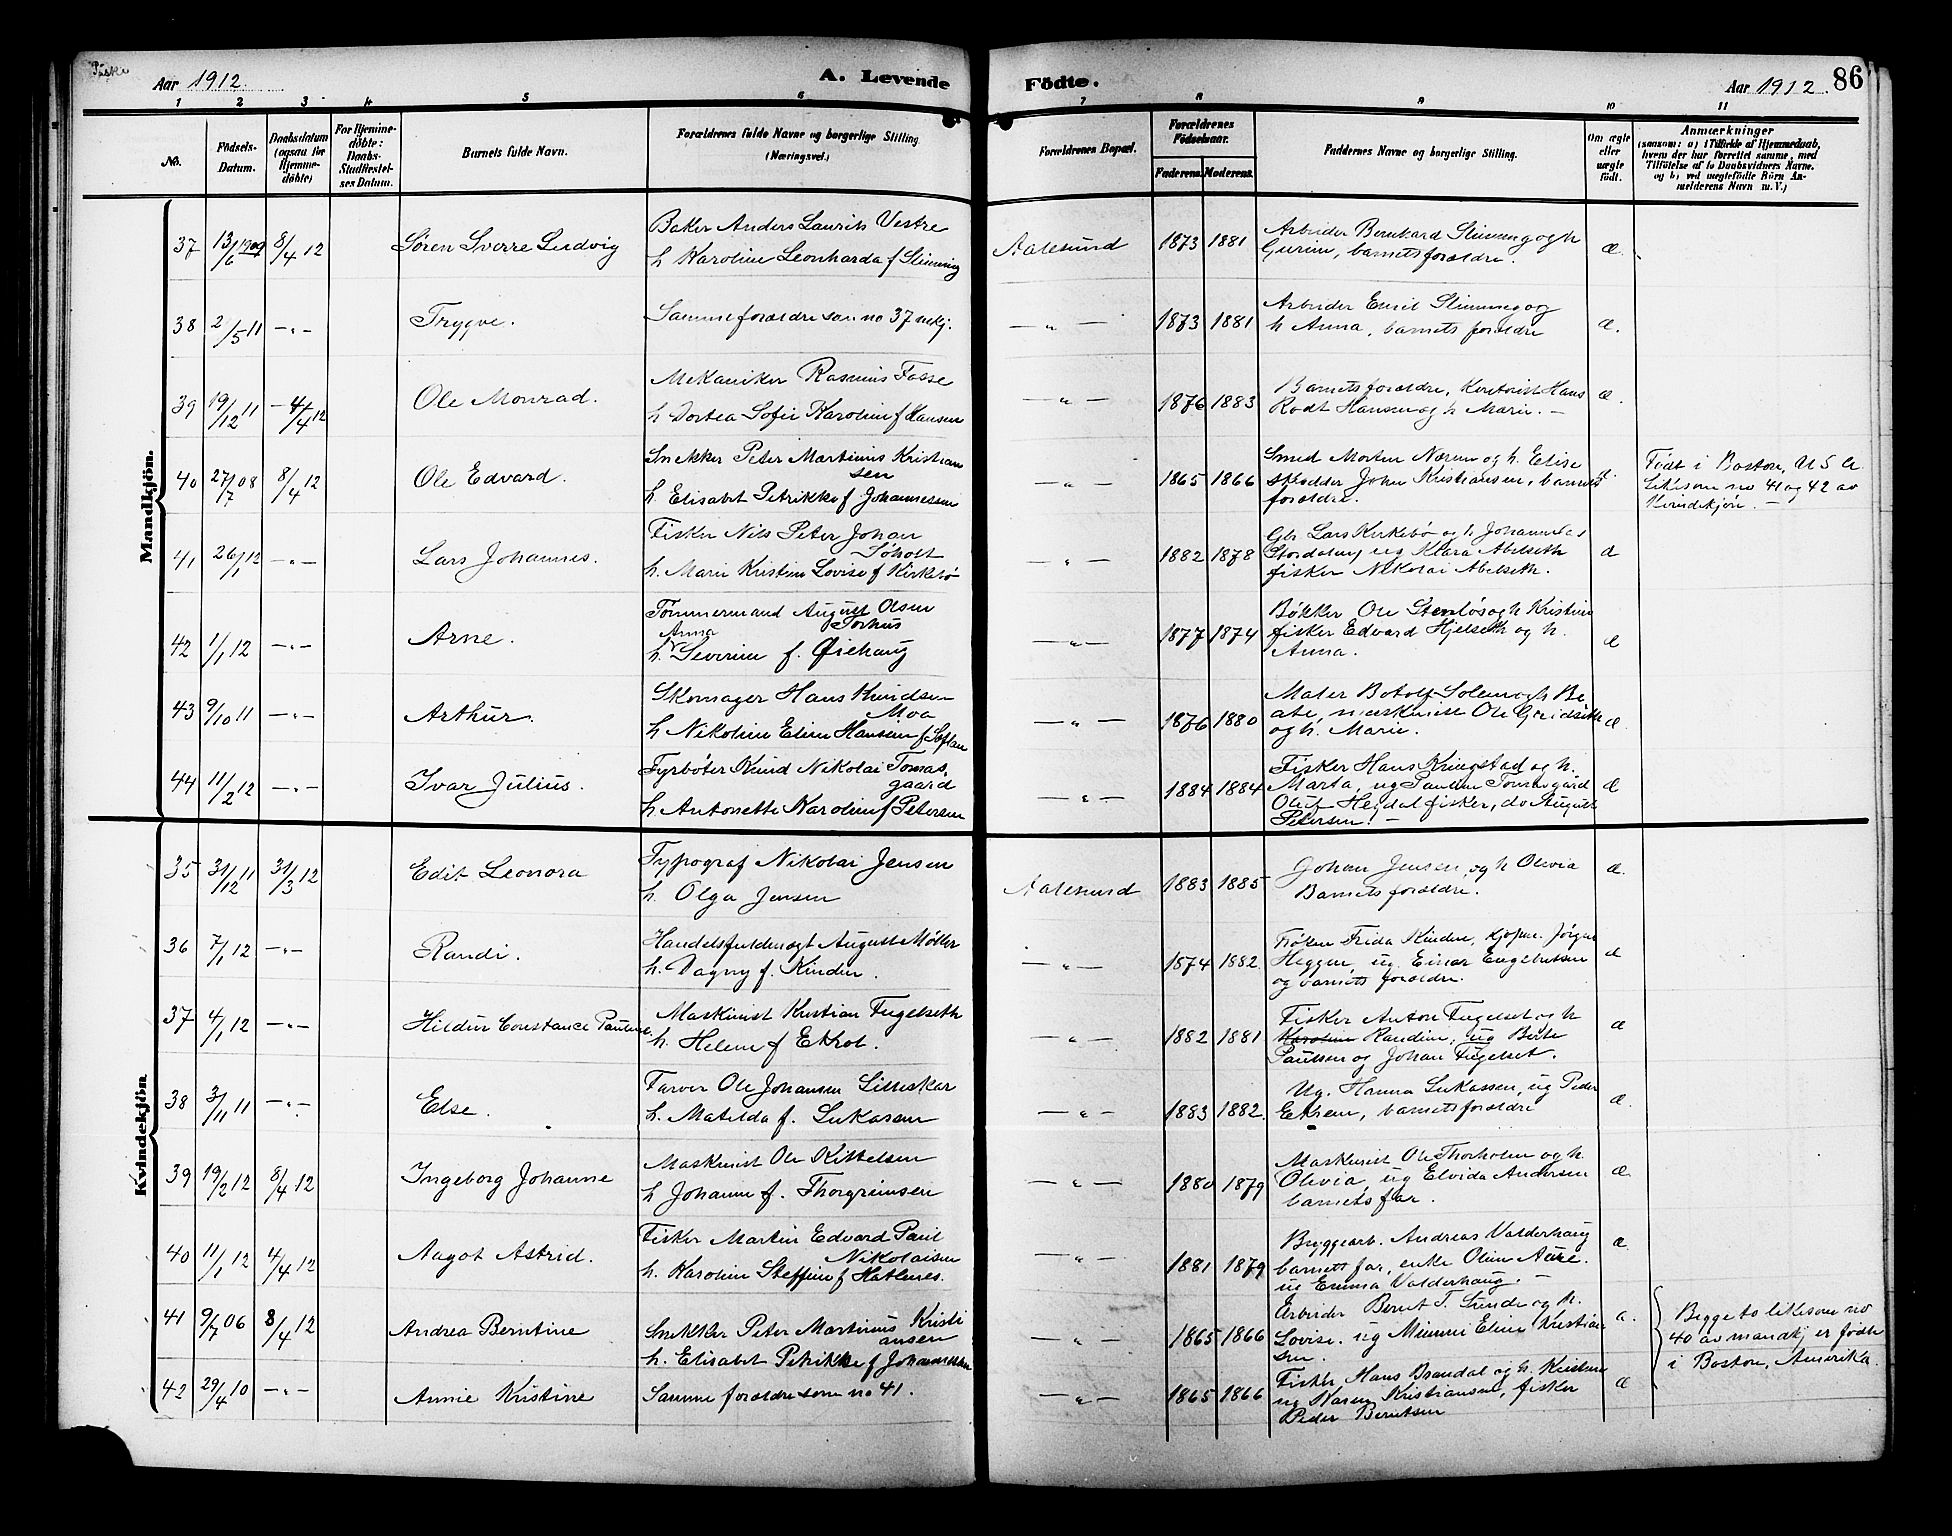 Aar 1912. A. Levende Födte. Aar 1912. 86
1 2 3 4 5 6 7 8 9 10 11
No. Födsels-Datum. Daabsdatum (ogsaa for Hjemmedöbte) For Hjemmedöbte: Daabs-Stadfæstelses Datum. Barnets fulde Navn. Forældrenes fulde Navne og borgerlige Stilling (Næringsvei.) Forældrenes Bopæl. Forældrenes Födselsaar. Faderens. Moderens. Faddernes Navne og borgerlige Stilling. Om ægte eller uægte født. Anmærkninger
(saasom: a) i Tilfælde af Hjemmedaab, hvem der har forrettet samme, med Tilföielse af to Daabsvidners Navne. og b) ved uægtefödte Börn Anmelderens Navn m.V.)
Mandkjön.
37 13/6 1909 8/4 12 Søren Sverre Ludvig Baker Anders Laurits Vestre
h. Karoline Leonharda f Slinning Aalesund 1873 1881 Arbeider Bernhard Slinning og h
Gurine, barnets forældre. æ.
38 2/5 11 -"- Trygve. Samme forældre som no 37 mkj. -"- 1873 1881 Arbeider Emil Slinning og
h Anna, barnets forældre æ.
39 19/12 11 4/4 12 Ole Monrad. Mekaniker Rasmus Fosse
h Dortea Sofie Karoline f Hansen -"- 1876 1883 Barnets forældre, Kontorist Hans
Rodt Hansen og h Marie. - æ.
40 27/7 08 8/4 12 Ole Edvard. Snekker Peter Martinus Kristian
sen
h. Elisabet Petrikke f Johannessen -"- 1865 1866 Smed Morten Nærum og h. Elise
John Kristiansen, barnets
forældre. æ. Født i Boston, U S A.
Likesom no 41 og 42 av
Kvindekjøn. -
41 26/1 12 -"- Lars Johannes. Fisker Nils Peter Johan
Søholt
h. Marie Kristine Lovise f Kirkebø -"- 1882 1878 Gbr. Lars Kirkebø og h Johanne Las
ug Klara Abelseth
fisker Nikolai Abelseth. æ
42 1/1 12 -"- Arne. Tømmermand August Olsen
Torhus
Anna
h. Severine f. Øiehaug -"- 1877 1874 Bøkker Ole Stenløs og h Kristine
fisker Edvard Hjelseth og h.
Anna. æ
43 9/10 11 -"- Arthur. Skomager Hans Knudsen
Moa
h Nikoline Eline Hansen f -"- 1876 1880 Maler Botolf Solem og h Be
ate, maskinist Ole
og h. Marie. æ.
44 11/2 12 -"- Ivar Julius. Fyrbøter Knud Nikolai Tomas
gaard
h Antonette Karoline f Petersen -"- 1884 1884 Fisker Hans Kringstad og h.
Marta, ug Pauline Tomasgård
Oluf Heydal fisker, do August
Petersen. - æ
Kvindekjön
35 31/12 11 31/3 12 Edit Leonora Typograf Nikolai Jensen
h. Olga Jensen Aalesund 1883 1885 Johan Jensen, og h Olivia
Barnets forældre. æ.
36 7/1 12 -"- Randi. Handelsfuldmægt August Møller
h. Dagny f. Kinden. -"- 1874 1882. Frøken Frida Kinden, kjøpm. Jørgen
Heggen, ug Einar Engebretsen
og barnets forældre. æ
37 4/1 12 -"- Hildur Constance Pauline Maskinist Kristian Fugelseth
h. Helene f Ekrol. -"- 1882 1881 Fisker Anton Fugelset og h
Karoline Randine, ug Berte
Paulsen og Johan Fugelset. æ
38 3/11 11 -"- Else. Farver Ole Johansen Lilleskar
h. Matilda f. Lukasen -"- 1883 1882. Ug. Hanna Lukassen, ug Peder
Ekrem, barnets forældre æ.
39 19/2 12 8/4 12 Ingeborg Johanne Maskinist Ole Kittelsen
h Johanne f. Thorgrimsen -"- 1880 1879 Maskinist Ole Thorholm og h
Olivia, ug Elvida Andersen
barnets far. æ.
40 11/1 12 4/4 12 Aagot Astrid. Fisker Martin Edvard Paul
Nikolaisen
h. Karoline Steffine f Hatlenes. -"- 1881 1879 Bryggearb. Andreas Valderhaug
barnets far, enke Oline Aure.
ug Emma Valderhaug. - æ.
41 9/7 06 8/4 12 Andrea Berntine Snekker Peter Martinus Kristi
ansen
h. Elisabet Petrikke f Johannessen -"- 1865 1866 Arbeider Bernt T. Sunde og h.
Lovise. ug Mimmi Eline Kristian
sen. æ. Begge to likesom no
40 av mandkj er fødte
i Boston, Amerika.
42 29/4 10 -"- Annie Kristine Samme forældre som no 41. -"- 1865 1866 Fisker Hans Brandal og h. Kristine
ug Karen Kristiansen, fisker
Peder Berntsen æ